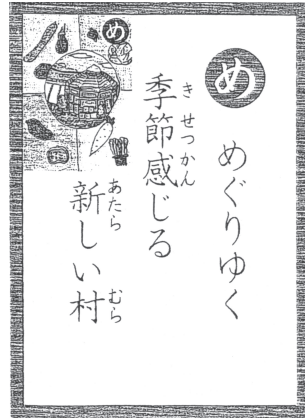 め
めぐりゆく
季節感じる
きせつかん
新しい村
あたら むら
め